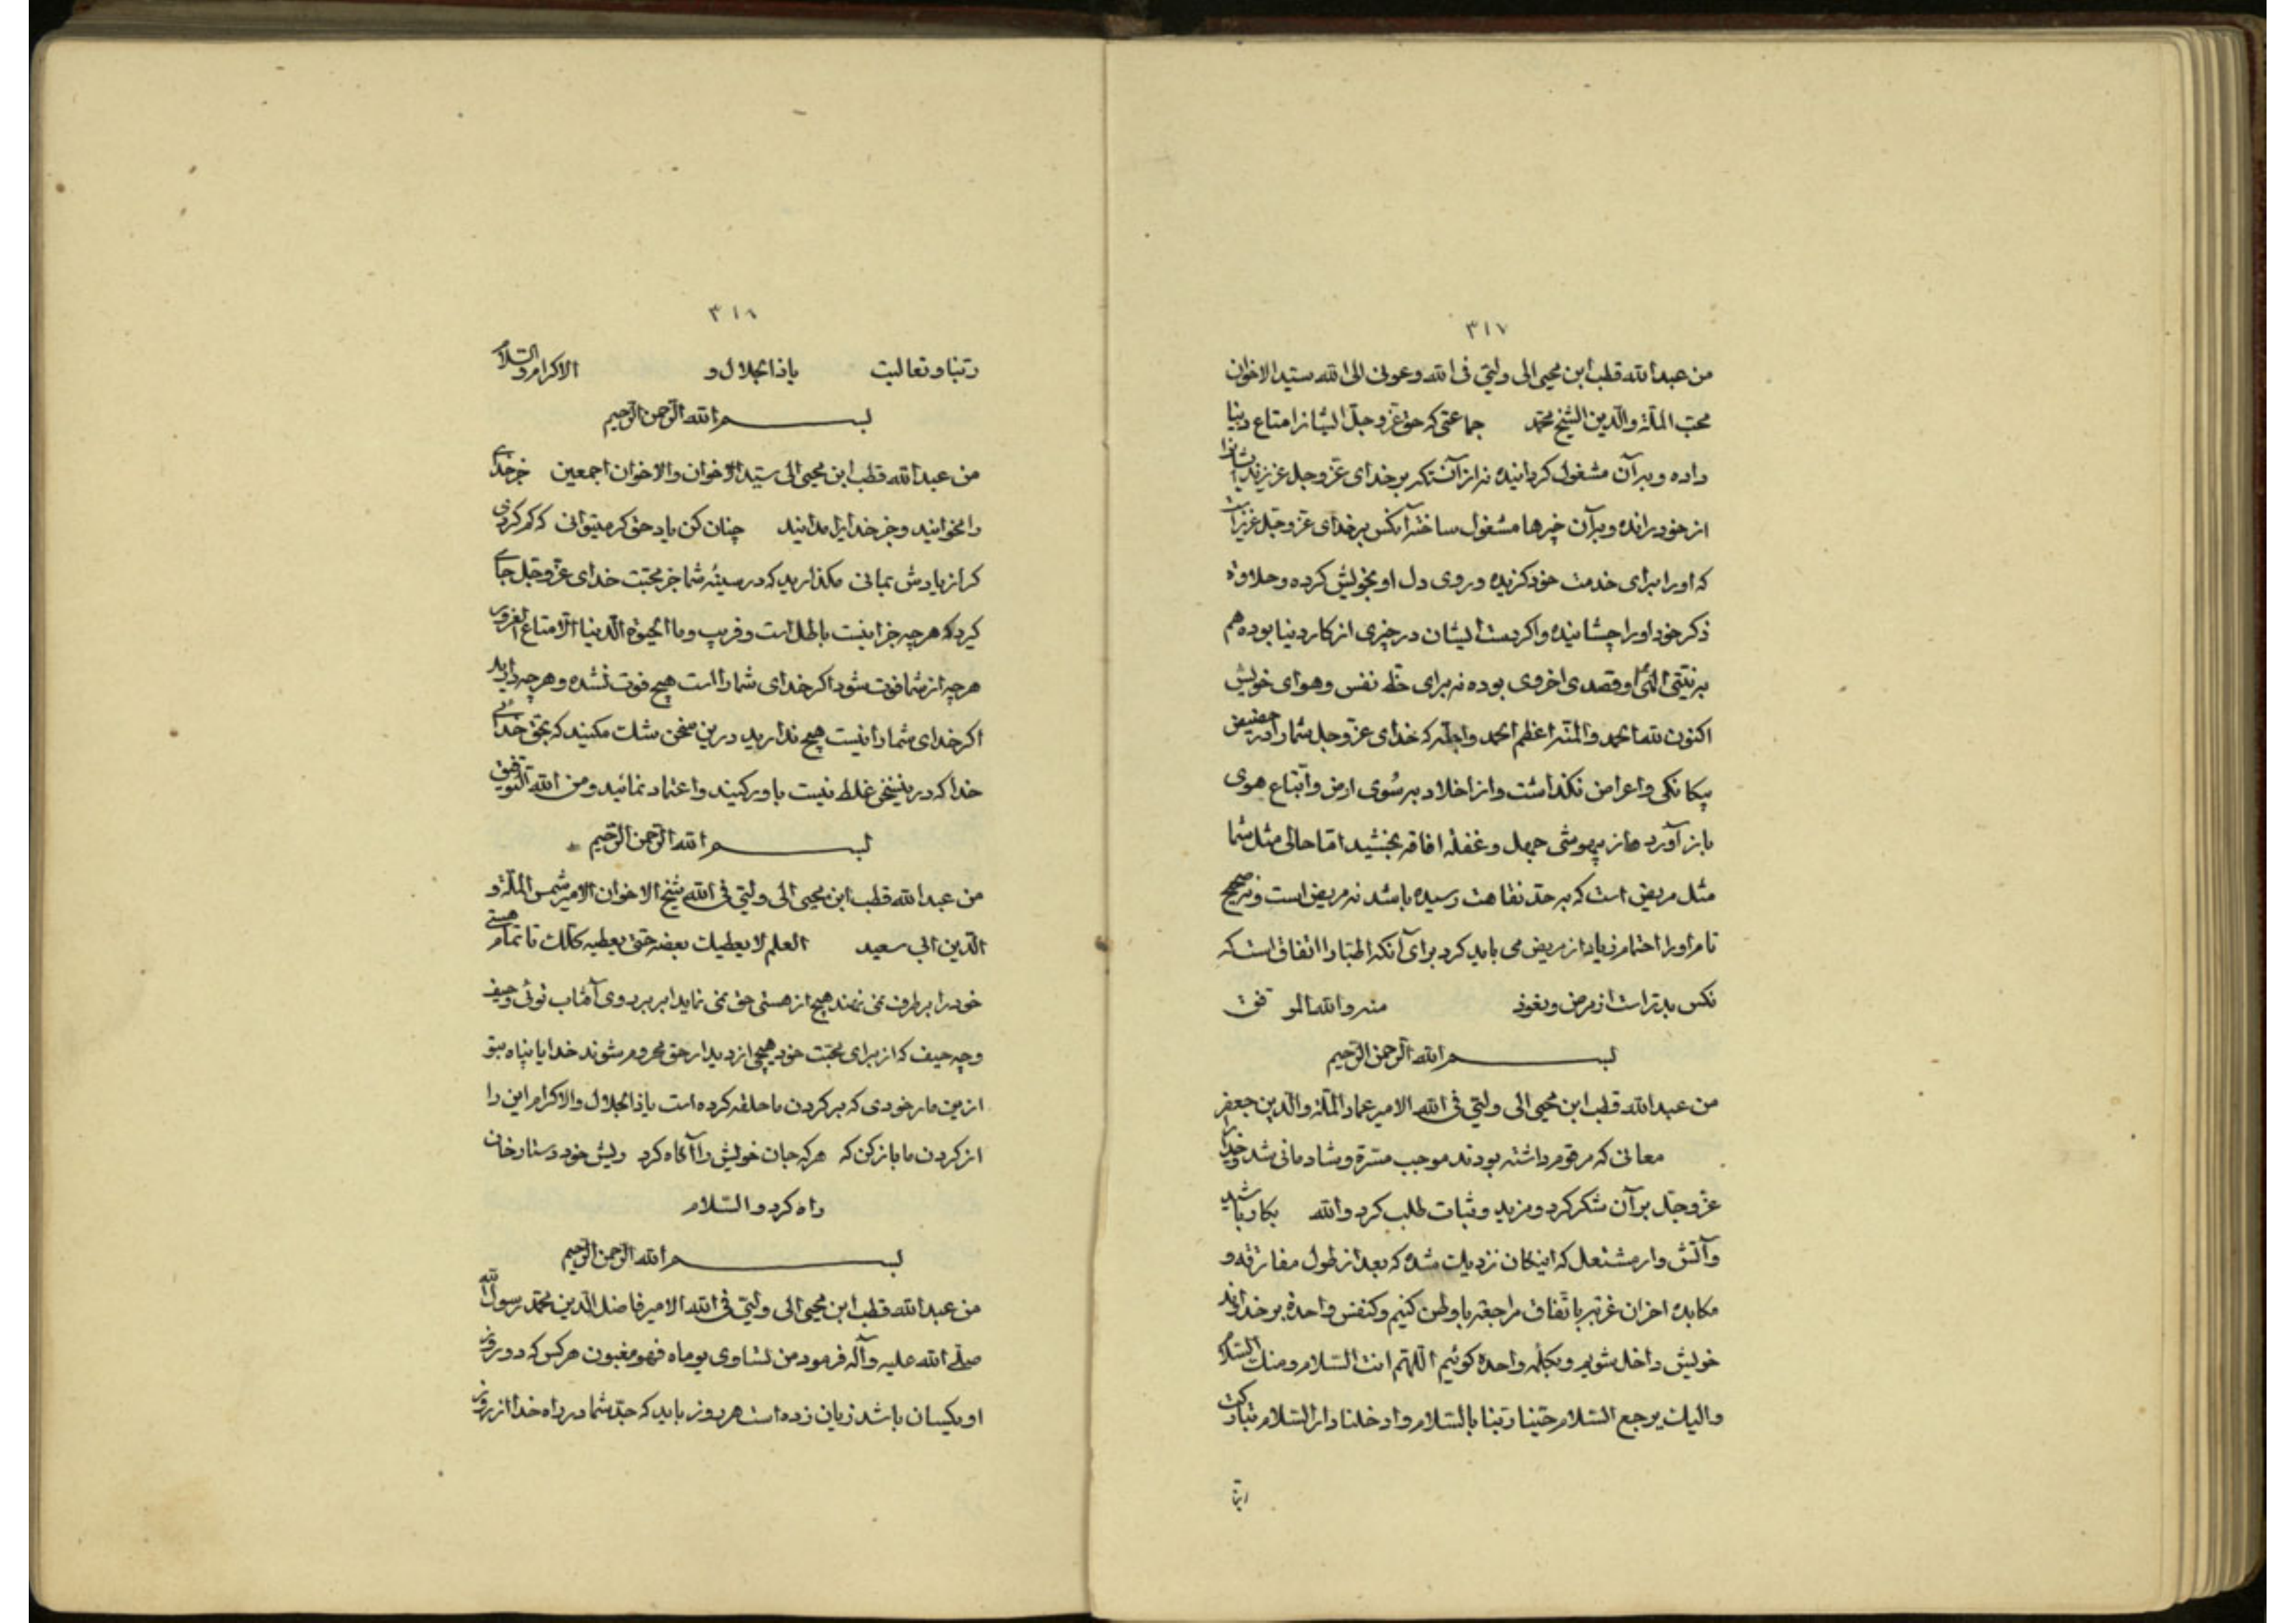 ٣١٧
من عبد الله قطب ابن محیی الی ولیّی فی الله وعونی الی الله سیّد الاخوان
محبّ الملّة والدّین الشیخ محمّد جماعتی که حق عزّ وجلّ ایشانرا متاع دنیا
داده و بر آن مشغول کردانیده نه از آنستکه بر خدای عزّ وجلّ عزیزند ایشانرا
از خود رانده و بر آن چیزها مشغول ساخته آنکس بر خدای عزّ وجلّ عزیز است
که او را برای خدمت خود کزیده و روی دل او بخویش کرده وحلاوة
ذکر خود او را چشانیده واکر دست ایشان در چیزی از کار دنیا بوده هم
به نیّتی الهی و قصدی اخروی بوده نه برای حظ نفس وهوای خویش
اکنون لله الحمد والمنّه اعظم الحمد واجلّه که خدای عزّ وجل شما را در حضیض
بیکانکی واعراض نکذاشت واز اخلاد به سُوی ارض واتّباع هوی
باز آورد واز بیهوشی جهل وغفلة افاقه بخشید امّا حالی مثل شما
مثل مریض است که به حدّ نقاهت رسیده باشد نه مریض است ونه صحیح
تام او را احتمام زیاد از مریض می باید کرد برای آنکه اطبّا را اتفاق است که
نکس بدتر است از مرض ونعوذ منه والله الموفق
بسم الله الرّحمن الرّحیم
من عبد الله قطب ابن محیی الی ولیّی فی الله الامیر عماد الملّة والدّین جعفر
معانی که مرقوم داشته بودند موجب مسرّة وشادمانی شد وخدای را
عزّ وجلّ بر آن شکر کرد ومزید وثبات طلب کرد والله بکار باشید
وآتش وار مشتعل که اینکان نزدیك شده که بعد از طول مفارقه و
مکابده احزان غربه باتّفاق مراجعه باوطن کنیم وکنفس واحدة بر خداوند
خویش داخل شویم وبکلمه واحده کوئیم اللّهم انت السّلام ومنك السّلام
والیك یرجع السّلام حیّنا ربّنا بالسّلام وادخلنا دار السّلام تبارکت
ربّنا
٣١٨
ربّنا وتعالیت یا ذا الجلال و الاکرام والسّلام
بسم الله الرّحمن الرّحیم
من عبد الله قطب ابن محیی الی سیّد الاخوان والاخوان اجمعین جز خدای
را مخوانید وجز خدایرا مدانید چنان کن یاد حق کر میتوانی که کم کردی
کر از یادش بمانی مکذارید که در سینهٔ شما جز محبّت خدای عزّ وجلّ جای
کیرد که هر چه جز اینست باطل است وفریب وما الحیوة الدّنیا الّا متاع الغرور
هر چه از شما فوت شود اکر خدای شما را است هیچ فوت نشده وهر چه دارید
اکر خدای شما را نیست هیچ ندارید درین سخن شك مکنید که بحق خدائی
خدا که درین سخن غلط نیست باور کنید واعتماد نمائید ومن الله التّوفیق
بسم الله الرّحمن الرّحیم
من عبد الله قطب ابن محیی الی ولیّی فی الله شیخ الاخوان الامیر شمس الملّة و
الدّین ابی سعید العلم لا یعطیك بعضه حتی یعطیه کلّك تا تمام هستی
خود را بر طرف نمی نهند هیچ از هستی حق نمی نماید ابر بر روی آفتاب توئی وحیف
وچه حیف که از برای محبّت خود هیچی از دیدار حق محروم شوند خدایا پناه بتو
ازین مار خودی که بر کردن ما حلقه کرده است یا ذا الجلال والاکرام این را
از کردن ما باز کن که هر که جان خویش را آکاه کرد ریش خود دستار خان
راه کرد والسّلام
بسم الله الرّحمن الرّحیم
من عبد الله قطب ابن محیی الی ولیّی فی الله الامیر فاضل الدّین محمّد رسول الله
صلّی الله علیه وآله فرمود من تساوی یوماه فهو مغبون هر کس که دو روز
او یکسان باشد زیان زده است هر روز باید که جدّ شما در راه خدا از روز